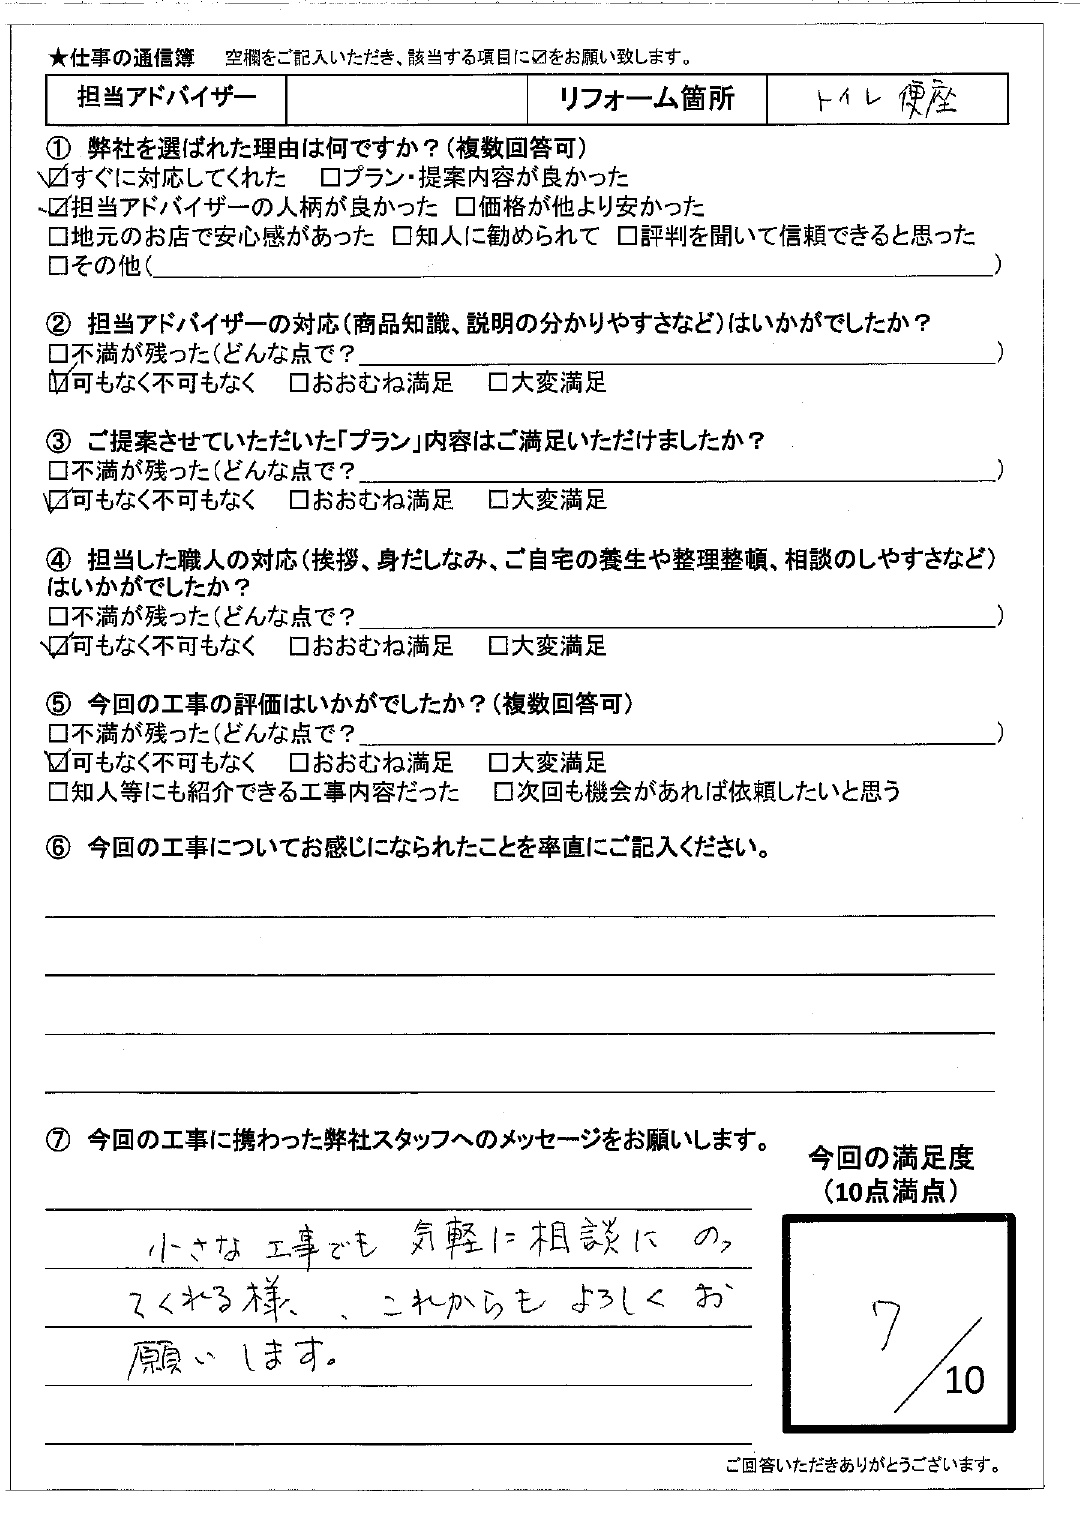 ★仕事の通信簿　空欄をご記入いただき、該当する項目に☑をお願い致します。
担当アドバイザー　リフォーム箇所　トイレ便座
① 弊社を選ばれた理由は何ですか？（複数回答可）
☑すぐに対応してくれた　□プラン・提案内容が良かった
☑担当アドバイザーの人柄が良かった　□価格が他より安かった
□地元のお店で安心感があった　□知人に勧められて　□評判を聞いて信頼できると思った
□その他（　）
② 担当アドバイザーの対応（商品知識、説明の分かりやすさなど）はいかがでしたか？
□不満が残った（どんな点で？　）
☑可もなく不可もなく　□おおむね満足　□大変満足
③ ご提案させていただいた「プラン」内容はご満足いただけましたか？
□不満が残った（どんな点で？　）
☑可もなく不可もなく　□おおむね満足　□大変満足
④ 担当した職人の対応（挨拶、身だしなみ、ご自宅の養生や整理整頓、相談のしやすさなど）
はいかがでしたか？
□不満が残った（どんな点で？　）
☑可もなく不可もなく　□おおむね満足　□大変満足
⑤ 今回の工事の評価はいかがでしたか？（複数回答可）
□不満が残った（どんな点で？　）
☑可もなく不可もなく　□おおむね満足　□大変満足
□知人等にも紹介できる工事内容だった　□次回も機会があれば依頼したいと思う
⑥ 今回の工事についてお感じになられたことを率直にご記入ください。
⑦ 今回の工事に携わった弊社スタッフへのメッセージをお願いします。
小さな工事でも気軽に相談にのっ
てくれる様、、これからもよろしくお
願いします。
今回の満足度
（10点満点）
7/10
ご回答いただきありがとうございます。